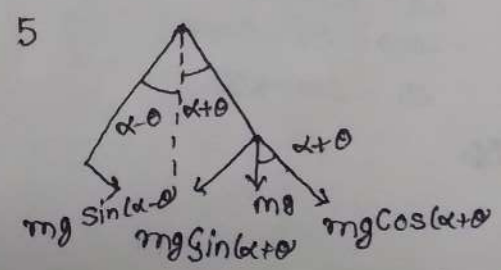 5
α-θ
α+θ
α+θ
mg sin(α-θ
mg
mg sin(α+θ
mg cos(α+θ